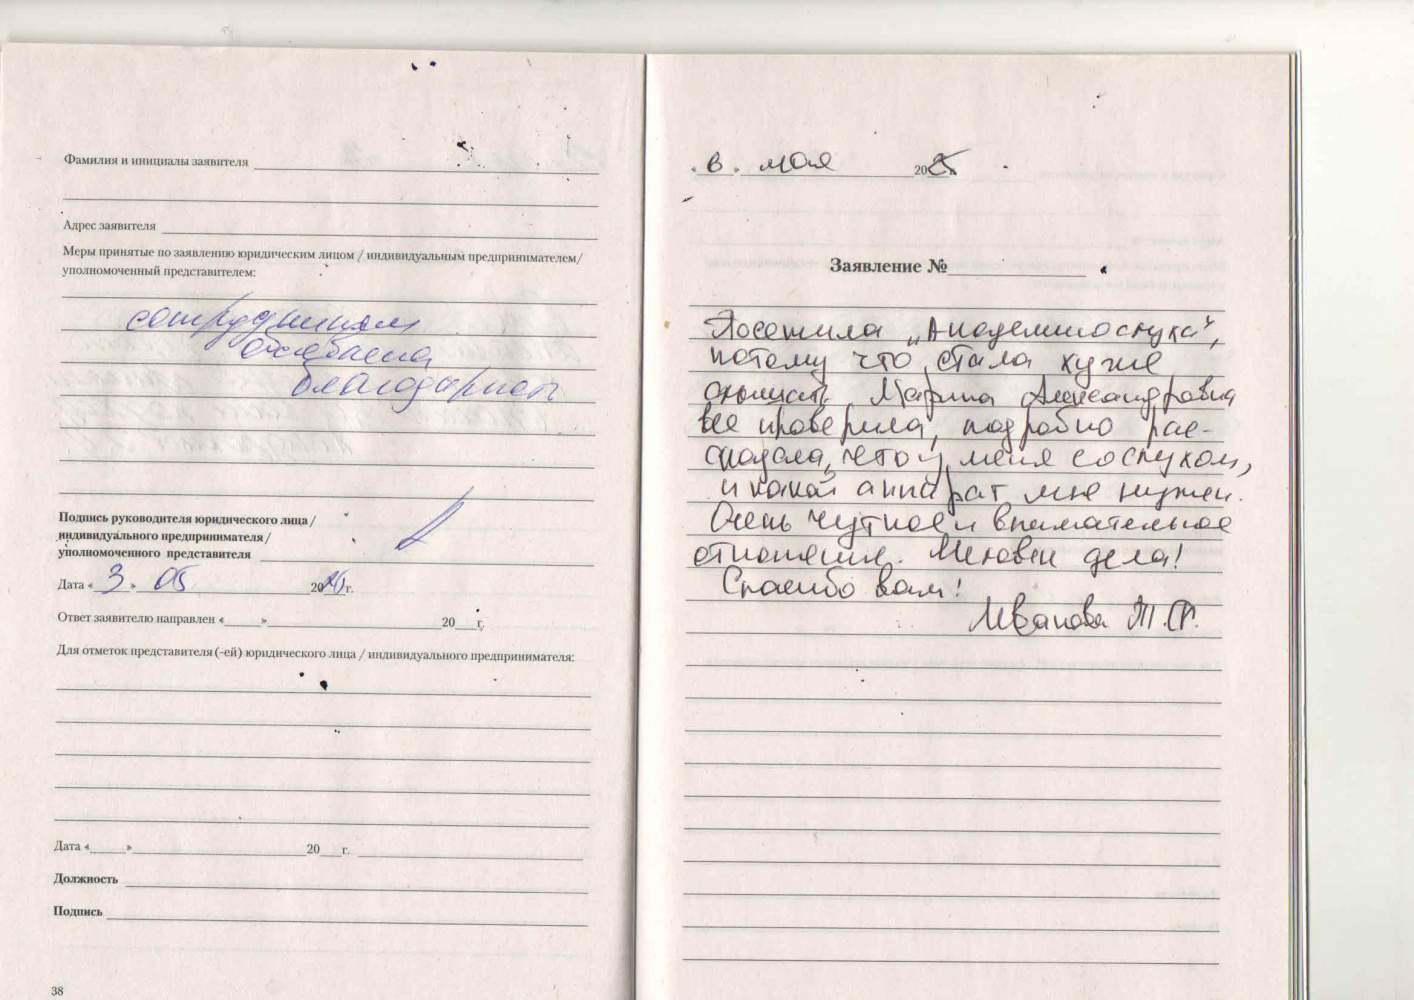 Фамилия и инициалы заявителя
Адрес заявителя
Меры принятые по заявлению юридическим лицом / индивидуальным предпринимателем/
уполномоченный представителем:
сотрудникам
объявлена
благодарность
Подпись руководителя юридического лица/
индивидуального предпринимателя/
уполномоченного представителя
Дата « 3 » 05 20 г.
Ответ заявителю направлен « » 20 г.
Для отметок представителя (-ей) юридического лица / индивидуального предпринимателя:
Дата « » 20 г.
Должность
Подпись
38
мая 20
Заявление №
Посетила „Академию слуха",
потому что стала хуже
слышать. Марина Александровна
все проверила, подробно рас-
сказала, что у меня со слухом,
и какой аппарат мне нужен.
Очень чуткое и внимательное
отношение. Человек дела!
Спасибо вам!
Иванова Т.